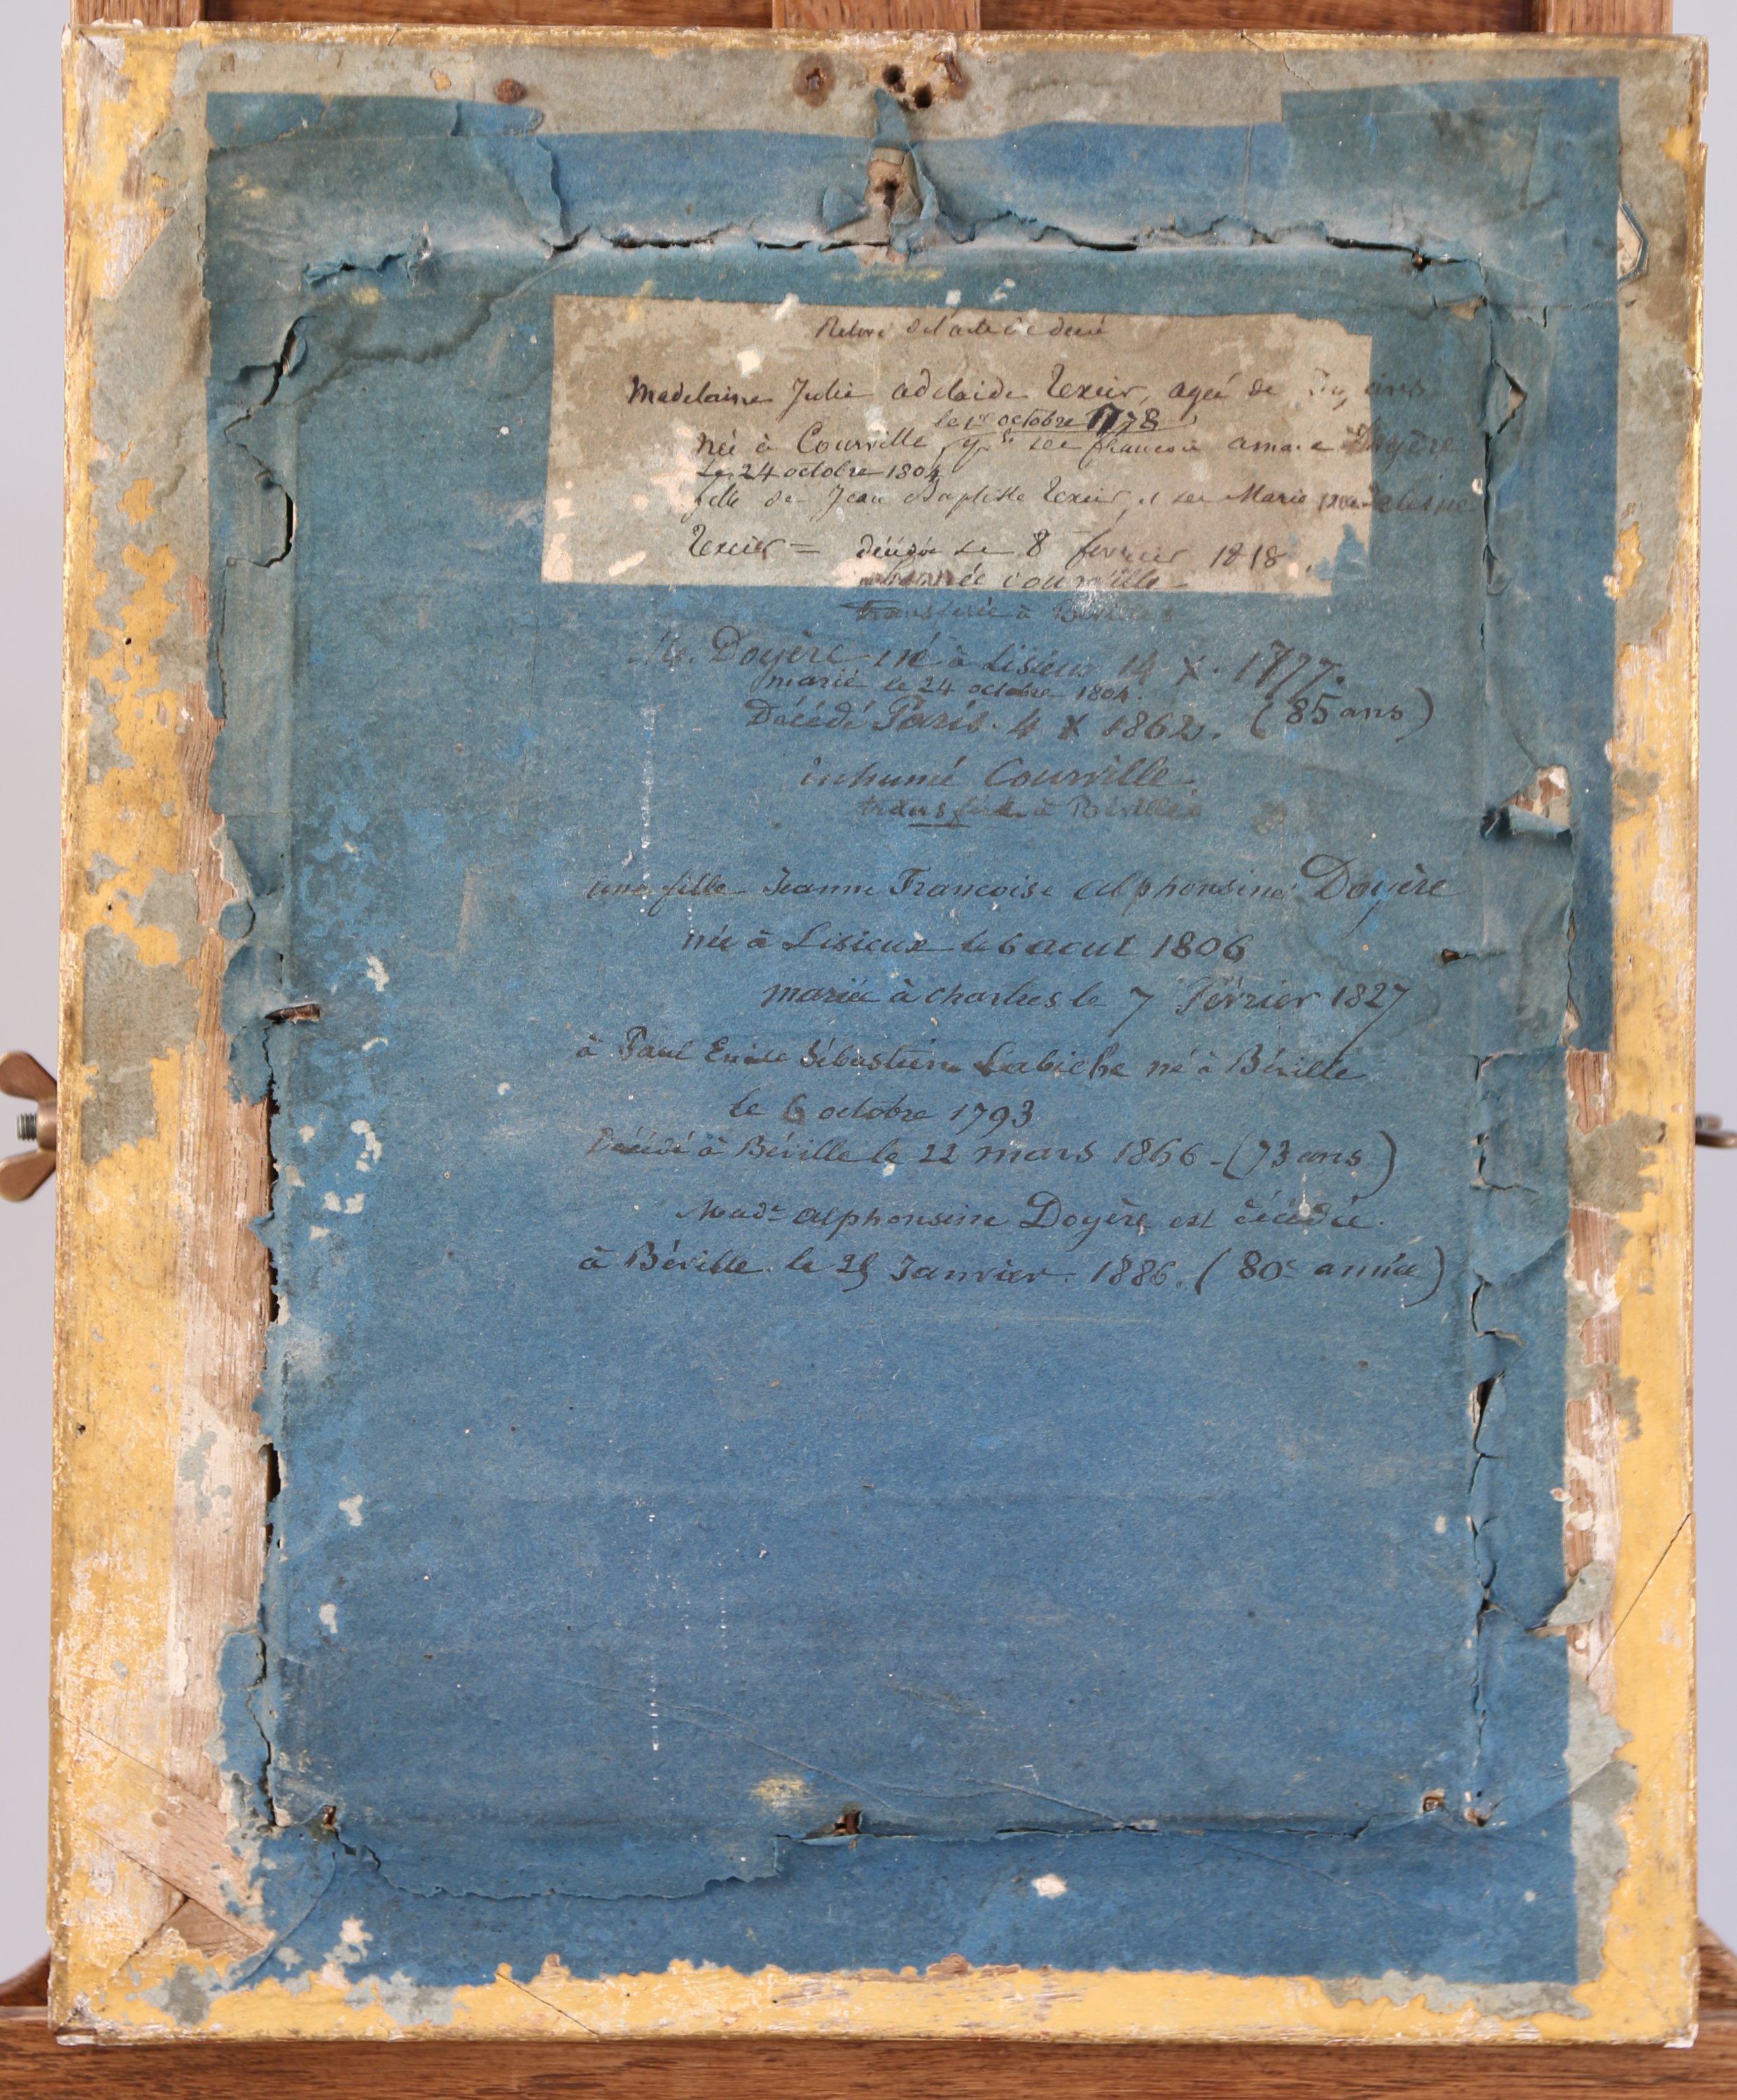 Relevé de l'acte de décès
Madelaine Julie adelaide Texier, agée de ans
le 1er octobre 1778
née à Courville, françois Doyère
Le 24 octobre 1804
fille de Jean Baptiste Texier, et de Marie
Texier = décédée le 8 fevrier 1818.
inhumée courville -
transferée à Béville
Mr. Doyère né à Lisieux 14 X. 1777.
marié le 24 octobre 1804.
Décédé Paris. 4 X 1862. (85 ans)
inhumé Courville -
transféré à Béville
une fille Jeanne Francoise alphonsine Doyère
née à Lisieux le 6 aout 1806
mariée à chartres le 7 Février 1827
à Paul Emile Sébastien Labiche né à Béville
le 6 octobre 1793
Décédé à Béville le 22 mars 1866 - (73 ans)
Made alphonsine Doyère est décédée.
à Béville. le 25 Janvier. 1886. (80e année)